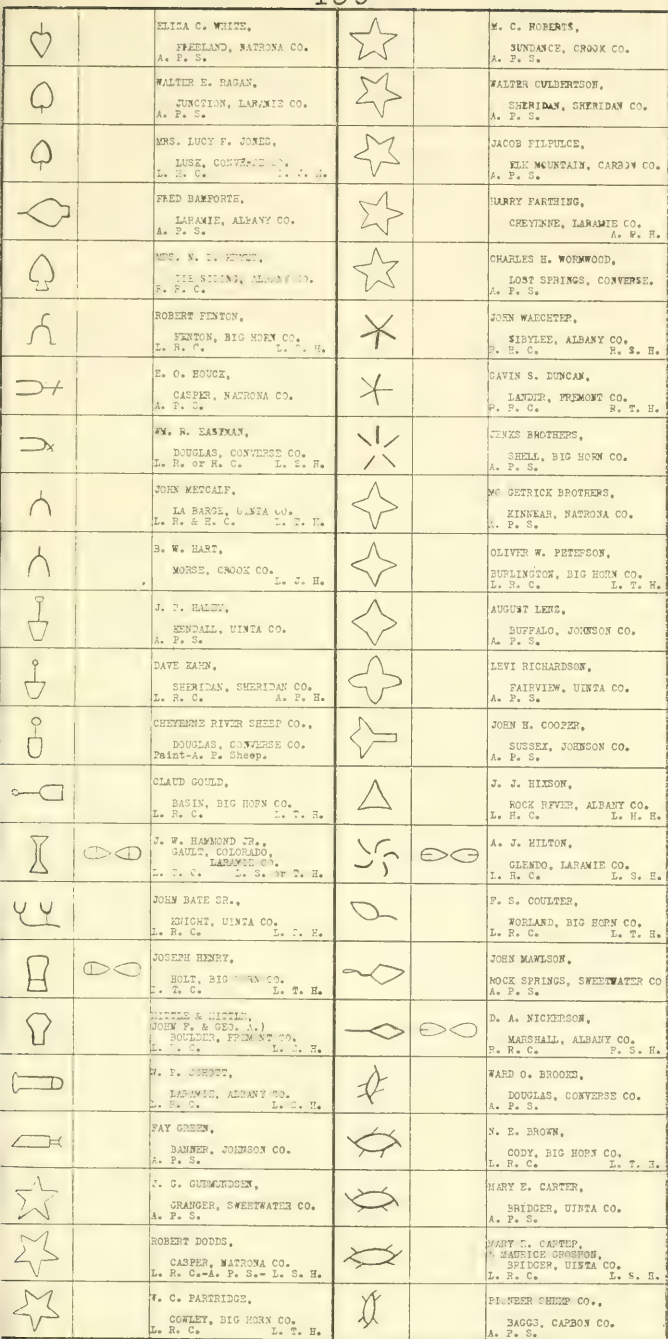 ELIZA C. WHITE,
FREELAND, NATRONA CO.
A. P. S.
WALTER E. RAGAN,
JUNCTION, LARAMIE CO.
A. P. S.
MRS. LUCY F. JONES,
LUSK, CONVERSE CO.
L. H. C.
FRED BAMFORTH,
LARAMIE, ALBANY CO.
A. P. S.
MRS. N.
TIE SIDING, ALBANY CO.
R. R. C.
ROBERT FENTON,
FENTON, BIG HORN CO.
L. R. C. H.
E. O. HOUCK,
CASPER, NATRONA CO.
A. P. S.
WM. R. EASTMAN,
DOUGLAS, CONVERSE CO.
L. R. or H. C. L. S. H.
JOHN METCALF,
LA BARGE, UINTA CO.
L. R. & H. C. L. T. H.
B. W. HART,
MORSE, CROOK CO.
L. J. H.
J. P. HALEY,
KENDALL, UINTA CO.
A. P. S.
DAVE KAHN,
SHERIDAN, SHERIDAN CO.
L. R. C. A. P. H.
CHEYENNE RIVER SHEEP CO.,
DOUGLAS, CONVERSE CO.
Paint-A. P. Sheep.
CLAUD GOULD,
BASIN, BIG HORN CO.
L. R. C. L. T. H.
J. W. HAMMOND JR.,
GAULT, COLORADO,
LARAMIE CO.
L. C. L. S. or T. H.
JOHN BATE SR.,
KNIGHT, UINTA CO.
L. R. C. L. H.
JOSEPH HENRY,
HOLT, BIG HORN CO.
L. T. C. L. T. H.
KITTLE & KITTLE,
(JOHN F. & GEO. A.)
BOULDER, FREMONT CO.
L. C. L. H.
W. P. SCHOTT,
LARAMIE, ALBANY CO.
L. R. C. L. S. H.
FAY GREEN,
BANNER, JOHNSON CO.
A. P. S.
J. G. GUDMUNDSEN,
GRANGER, SWEETWATER CO.
A. P. S.
ROBERT DODDS,
CASPER, NATRONA CO.
L. R. C.-A. P. S.- L. S. H.
W. C. PARTRIDGE,
COWLEY, BIG HORN CO.
L. R. C. L. T. H.
M. C. ROBERTS,
SUNDANCE, CROOK CO.
A. P. S.
WALTER CULBERTSON,
SHERIDAN, SHERIDAN CO.
A. P. S.
JACOB FILPULCE,
ELK MOUNTAIN, CARBON CO.
A. P. S.
HARRY FARTHING,
CHEYENNE, LARAMIE CO.
A. P. H.
CHARLES H. WORMWOOD,
LOST SPRINGS, CONVERSE.
A. P. S.
JOHN WAECHTER,
SIBYLEE, ALBANY CO.
R. H. C. R. S. H.
GAVIN S. DUNCAN,
LANDER, FREMONT CO.
R. R. C. R. T. H.
JENKS BROTHERS,
SHELL, BIG HORN CO.
A. P. S.
MC GETRICK BROTHERS,
KINNEAR, NATRONA CO.
A. P. S.
OLIVER W. PETERSON,
BURLINGTON, BIG HORN CO.
L. R. C. L. T. H.
AUGUST LENZ,
BUFFALO, JOHNSON CO.
A. P. S.
LEVI RICHARDSON,
FAIRVIEW, UINTA CO.
A. P. S.
JOHN H. COOPER,
SUSSEX, JOHNSON CO.
A. P. S.
J. J. HIXSON,
ROCK RIVER, ALBANY CO.
L. H. C. L. H. H.
A. J. HILTON,
GLENDO, LARAMIE CO.
L. H. C. L. S. H.
F. S. COULTER,
WORLAND, BIG HORN CO.
L. R. C. L. T. H.
JOHN MAWLSON,
ROCK SPRINGS, SWEETWATER CO
A. P. S.
D. A. NICKERSON,
MARSHALL, ALBANY CO.
R. R. C. R. S. H.
WARD O. BROOKS,
DOUGLAS, CONVERSE CO.
A. P. S.
N. E. BROWN,
CODY, BIG HORN CO.
L. R. C. L. T. H.
MARY E. CARTER,
BRIDGER, UINTA CO.
A. P. S.
MARY E. CARTER,
MAURICE GROSHON,
BRIDGER, UINTA CO.
L. R. C. L. S. H.
PIONEER SHEEP CO.,
BAGGS, CARBON CO.
A. P. S.